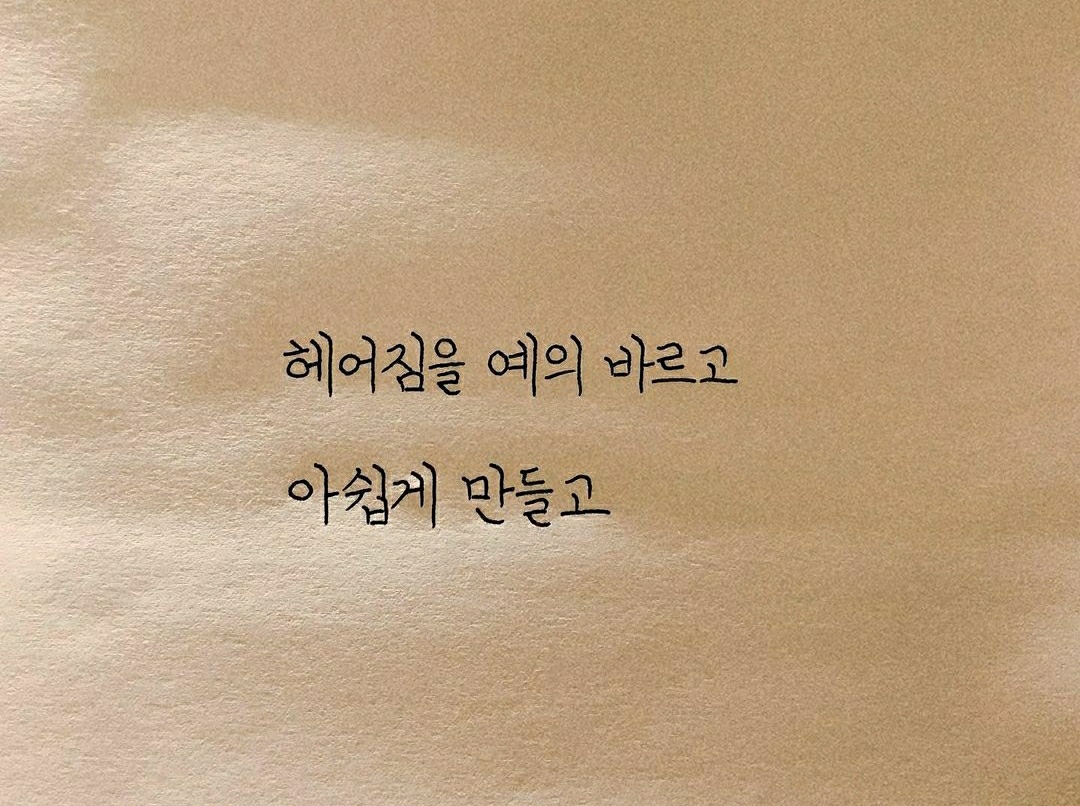 헤어짐을 예의 바르고
아쉽게 만들고